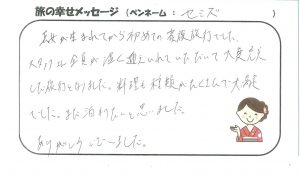 旅の幸せメッセージ(ペンネーム:セミズ)
が生まれてから初めての家族旅行でした。
スタッフ全員が温く迎えていただいて大変充実
した旅行となりました。料理も種類がたくさんで大満足
でした。また泊わたいと思いました。
ありがとうございました。